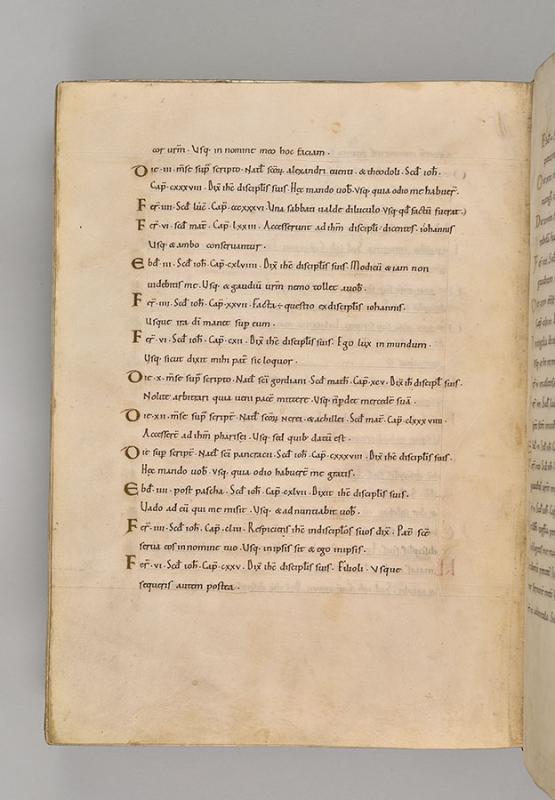 cor urm̄ · Usq; in nomine meo hoc faciam ·
Die · iii · m̄se sup̄ scripto · Natl̄ sc̄orȝ alexandri euenti · & theodoli · Scd̄ ioh̄ ·
Cap̄ · cxxxviii · Dix̄ ih̄c disciplis̄ suis · Hęc mando uob̄ · Usq; quia odio me habuer̄ ·
Fer̄ · iiii · Scd̄ luc̄ · Cap̄ · ccxxxvi · Una sabbati ualde diluculo · Usq; qd̄ factū fuerat ·
Fer̄ · vi · scd̄ mat̄ · Cap̄ · lxxiii · Accesserunt ad ihm̄ discipli · dicentes · iohannis
Usq; & ambo conseruantur ·
Ebd̄ · iii · Scd̄ ioh̄ · Cap̄ · cxlviiii · Dix̄ ih̄c disciplis̄ suis · Modicū & iam non
uidebitis me · Usq; & gaudiū urm̄ nemo tollet auob̄ ·
Fer̄ · iiii · Scd̄ ioh̄ · Cap̄ · xxvii · Facta ÷ questio exdisciplis̄ iohannis ·
Usque ira dī manet sup eum ·
Fer̄ · vi · Scd̄ ioh̄ · Cap̄ · cxii · Dix̄ ih̄c disciplis̄ suis · Ego lux in mundum ·
Usq; sicut dixit mihi pat̄ sic loquor ·
Die · x · m̄se sup̄ scripto · Natl̄ sc̄i gordiani · Scd̄ math̄ · Cap̄ · xcv · Dix̄ ih̄ discipl̄ suis ·
Nolite arbitrari quia ueni pacē mittere · Usq; ñpdet mercedē suā ·
Die · xii · m̄se sup̄ script̄ · Natl̄ sc̄orȝ nerei · & achillei · Scd̄ mat̄ · Cap̄ · clxxxviiii ·
Accesser̄ ad ihm̄ pharisei · Usq; sed quib; datū est ·
Die sup̄ script̄ · Natl̄ sc̄i pancracii · Scd̄ ioh̄ · Cap̄ · cxxxviii · Dix̄ ih̄c disciplis̄ suis ·
Hęc mando uob̄ · Usq; quia odio habuer̄ me gratis ·
Ebd̄ · iiii · post pascha · Scd̄ ioh̄ · Cap̄ · cxlvii · Dixit ih̄c disciplis̄ suis ·
Uado ad eū qui me misit · Usq; & adnuntiabit uob̄ ·
Fer̄ · iiii · Scd̄ ioh̄ · Cap̄ · cliii · Respiciens ih̄c indisciplos̄ suos dix̄ · Pat̄ sc̄e
serua eos innomine tuo · Usq; inipsis sit & ego inipsis ·
Fer̄ · vi · Scd̄ ioh̄ · Cap̄ · cxxv · Dix̄ ih̄c disciplis̄ suis · Filioli · Usque
sequeris autem postea ·